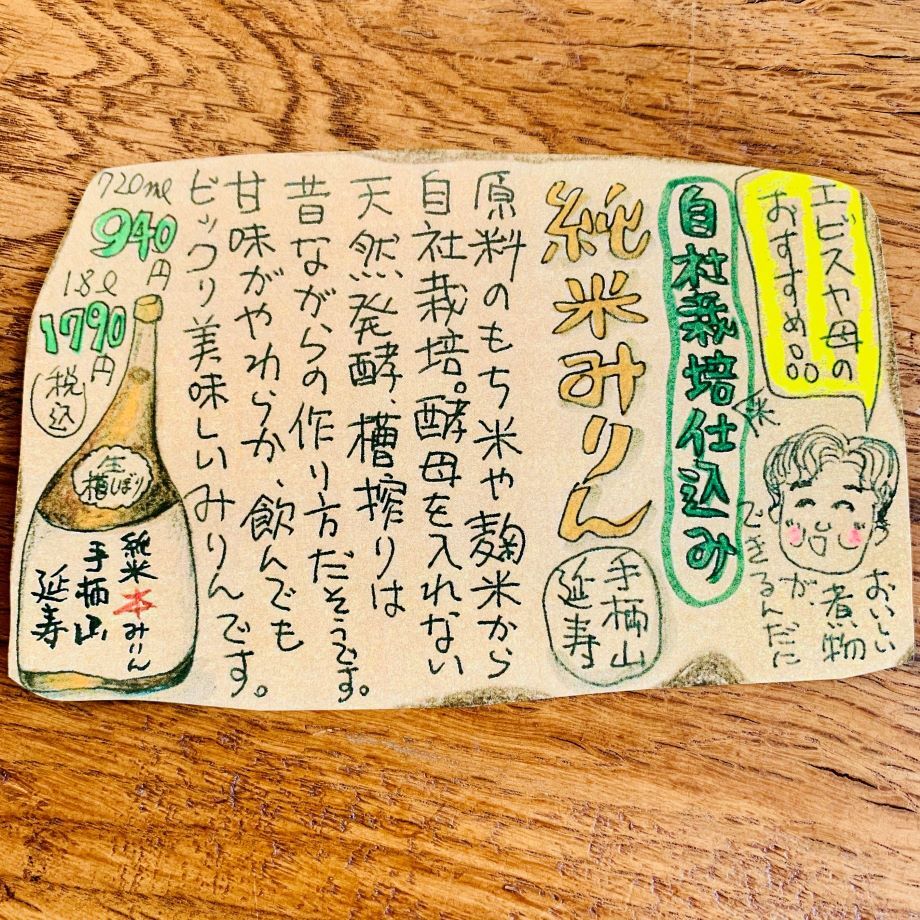 エビスや母の
おすすめ品
おいしい
煮物
が、
できるんだに
自社栽培米仕込み
純米みりん
手柄山
延寿
原料のもち米や麹米から
自社栽培。酵母を入れない
天然発酵、槽搾りは
昔ながらの作り方だそうです。
甘味がやわらか、飲んでも
ビックリ美味しいみりんです。
720ml
940円
1.8ℓ
1790円
税込
生
槽しぼり
純米本みりん
手柄山
延寿